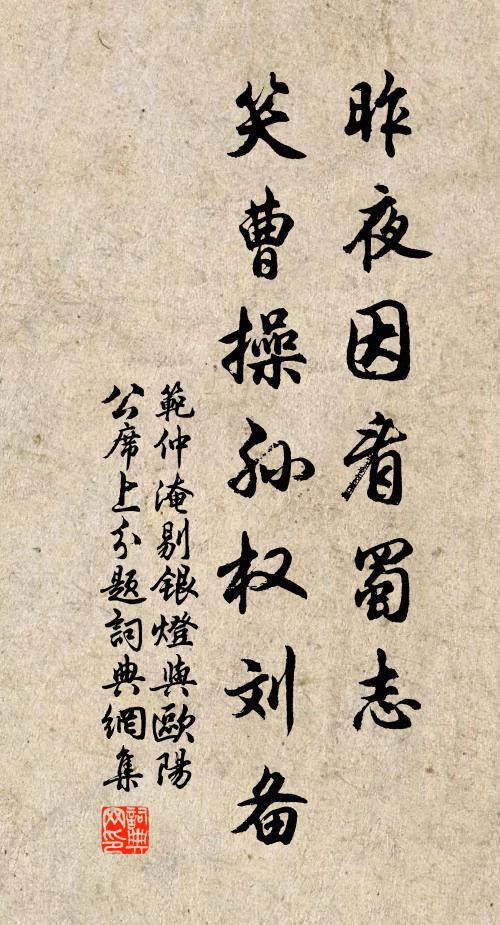 昨夜因看蜀志
笑曹操孙权刘备
範仲淹剔銀燈與歐陽
公席上分題詞典網集
詞典网印